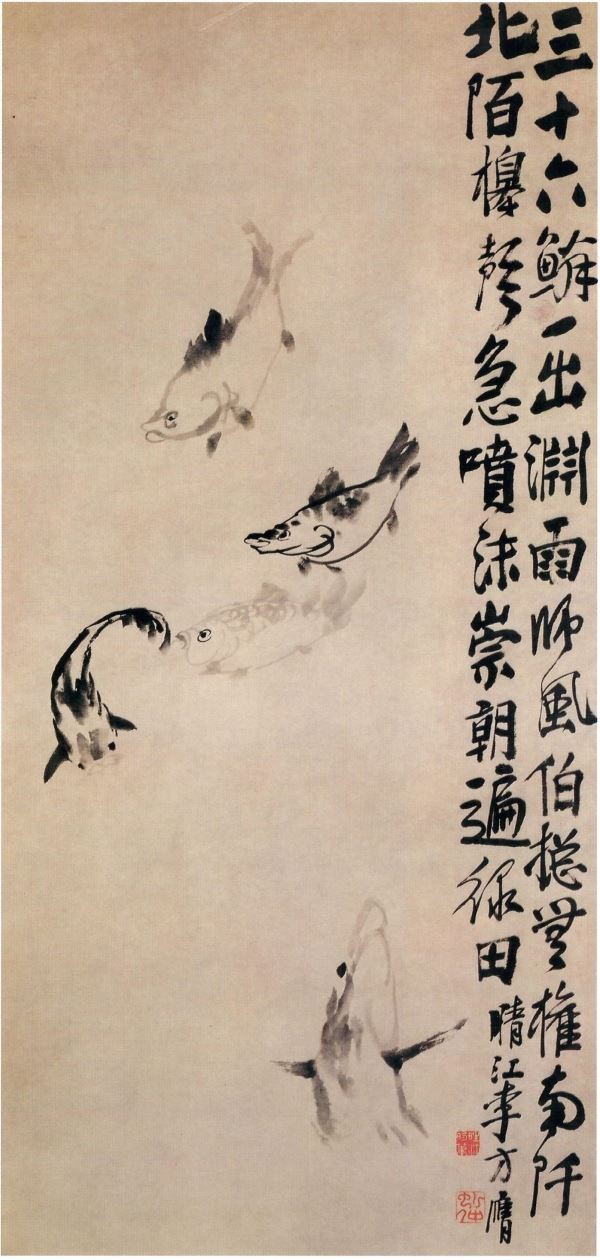 三十六鱗一出淵雨師風伯揔無權南阡
北陌槔聲急噴沫崇朝遍綠田
晴江李方膺